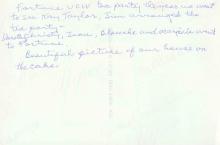 Fortune UCW tea party the year we went
to see Kay Taylor, Jean arranged the
tea party -
Christy, Irene, Blanche and Marjorie went
to Fortune.
Beautiful picture of our house on
the cake.